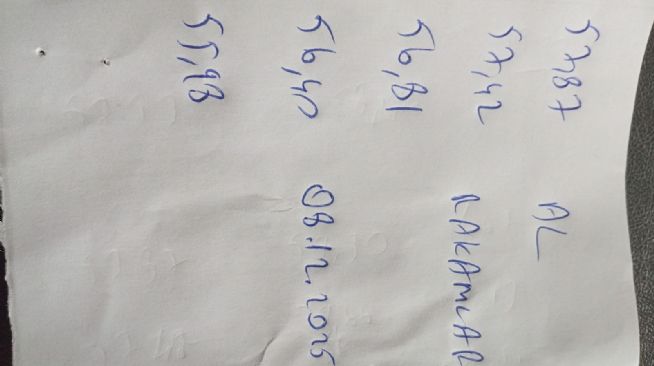 57,87 AL
57,42 RAKAMLAR
56,81
56,40 08.12.2025
55,98